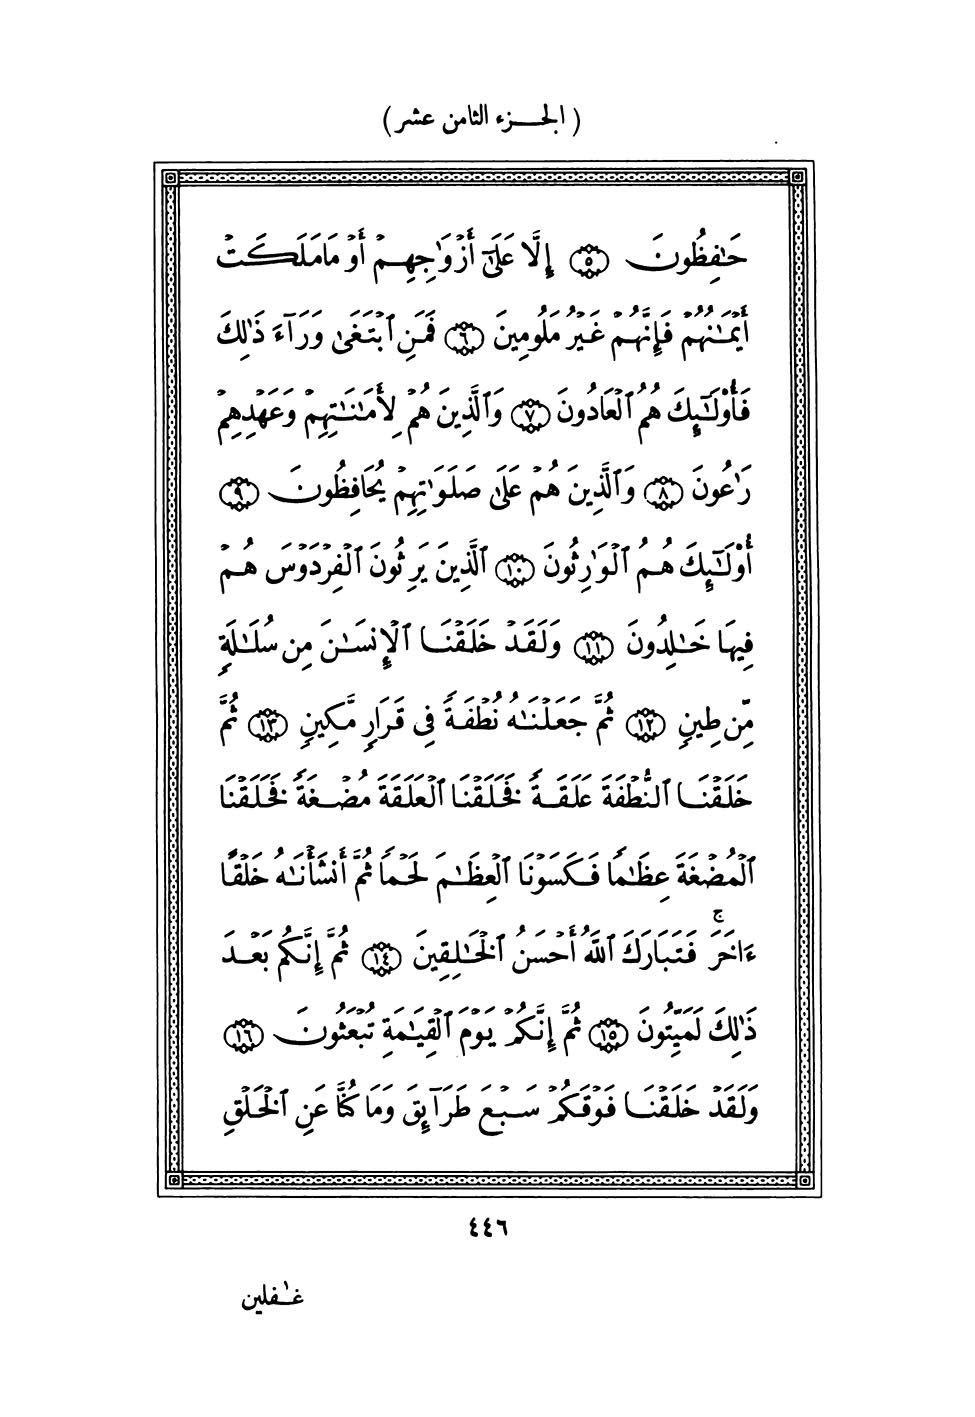 ( الجزء الثامن عشر )
حَٰفِظُونَ ٥ إِلَّا عَلَىٰٓ أَزْوَٰجِهِمْ أَوْ مَا مَلَكَتْ
أَيْمَٰنُهُمْ فَإِنَّهُمْ غَيْرُ مَلُومِينَ ٦ فَمَنِ ٱبْتَغَىٰ وَرَآءَ ذَٰلِكَ
فَأُوْلَٰٓئِكَ هُمُ ٱلْعَادُونَ ٧ وَٱلَّذِينَ هُمْ لِأَمَٰنَٰتِهِمْ وَعَهْدِهِمْ
رَٰعُونَ ٨ وَٱلَّذِينَ هُمْ عَلَىٰ صَلَوَٰتِهِمْ يُحَافِظُونَ ٩
أُوْلَٰٓئِكَ هُمُ ٱلْوَٰرِثُونَ ١٠ ٱلَّذِينَ يَرِثُونَ ٱلْفِرْدَوْسَ هُمْ
فِيهَا خَٰلِدُونَ ١١ وَلَقَدْ خَلَقْنَا ٱلْإِنسَٰنَ مِن سُلَٰلَةٍ
مِّن طِينٍ ١٢ ثُمَّ جَعَلْنَٰهُ نُطْفَةً فِى قَرَارٍ مَّكِينٍ ١٣ ثُمَّ
خَلَقْنَا ٱلنُّطْفَةَ عَلَقَةً فَخَلَقْنَا ٱلْعَلَقَةَ مُضْغَةً فَخَلَقْنَا
ٱلْمُضْغَةَ عِظَٰمًا فَكَسَوْنَا ٱلْعِظَٰمَ لَحْمًا ثُمَّ أَنشَأْنَٰهُ خَلْقًا
ءَاخَرَ ۚ فَتَبَارَكَ ٱللَّهُ أَحْسَنُ ٱلْخَٰلِقِينَ ١٤ ثُمَّ إِنَّكُم بَعْدَ
ذَٰلِكَ لَمَيِّتُونَ ١٥ ثُمَّ إِنَّكُمْ يَوْمَ ٱلْقِيَٰمَةِ تُبْعَثُونَ ١٦
وَلَقَدْ خَلَقْنَا فَوْقَكُمْ سَبْعَ طَرَآئِقَ وَمَا كُنَّا عَنِ ٱلْخَلْقِ
٤٤٦
غَٰفلين